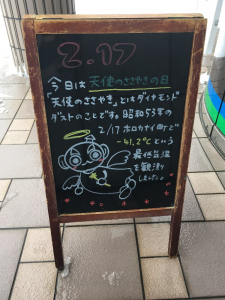 2.17
今日は天使のささやきの日
「天使のささやき」とはダイヤモンド
ダストのことです。昭和53年の
2/17 ホロカナイ町で
-41.2℃という
最低気温
を観測
しました。